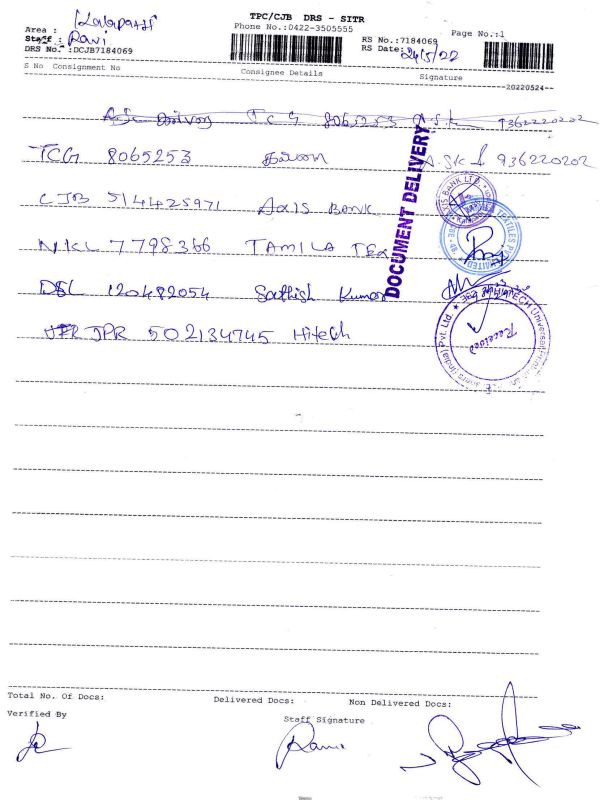 TPC/CJB DRS - SITR
Phone No.:0422-3505555
Area : Kalapatti
Staff : Ravi
DRS No.:DCJB7184069
RS No.:7184069 Page No.:1
RS Date: 24/5/22
S No Consignment No Consignee Details Signature
20220524
TCG 8065253 A.S.K 9362220202
TCG 8065253 A.S.K 936220202
CJB 514425971 AXIS BANK
NKL 7798366 TAMILA TEX
DSL 120482054 Sathish Kumar
JPR 502134745 Hitech
DOCUMENT DELIVERY
Received
Total No. Of Docs: Delivered Docs: Non Delivered Docs:
Verified By Staff Signature
Ravi